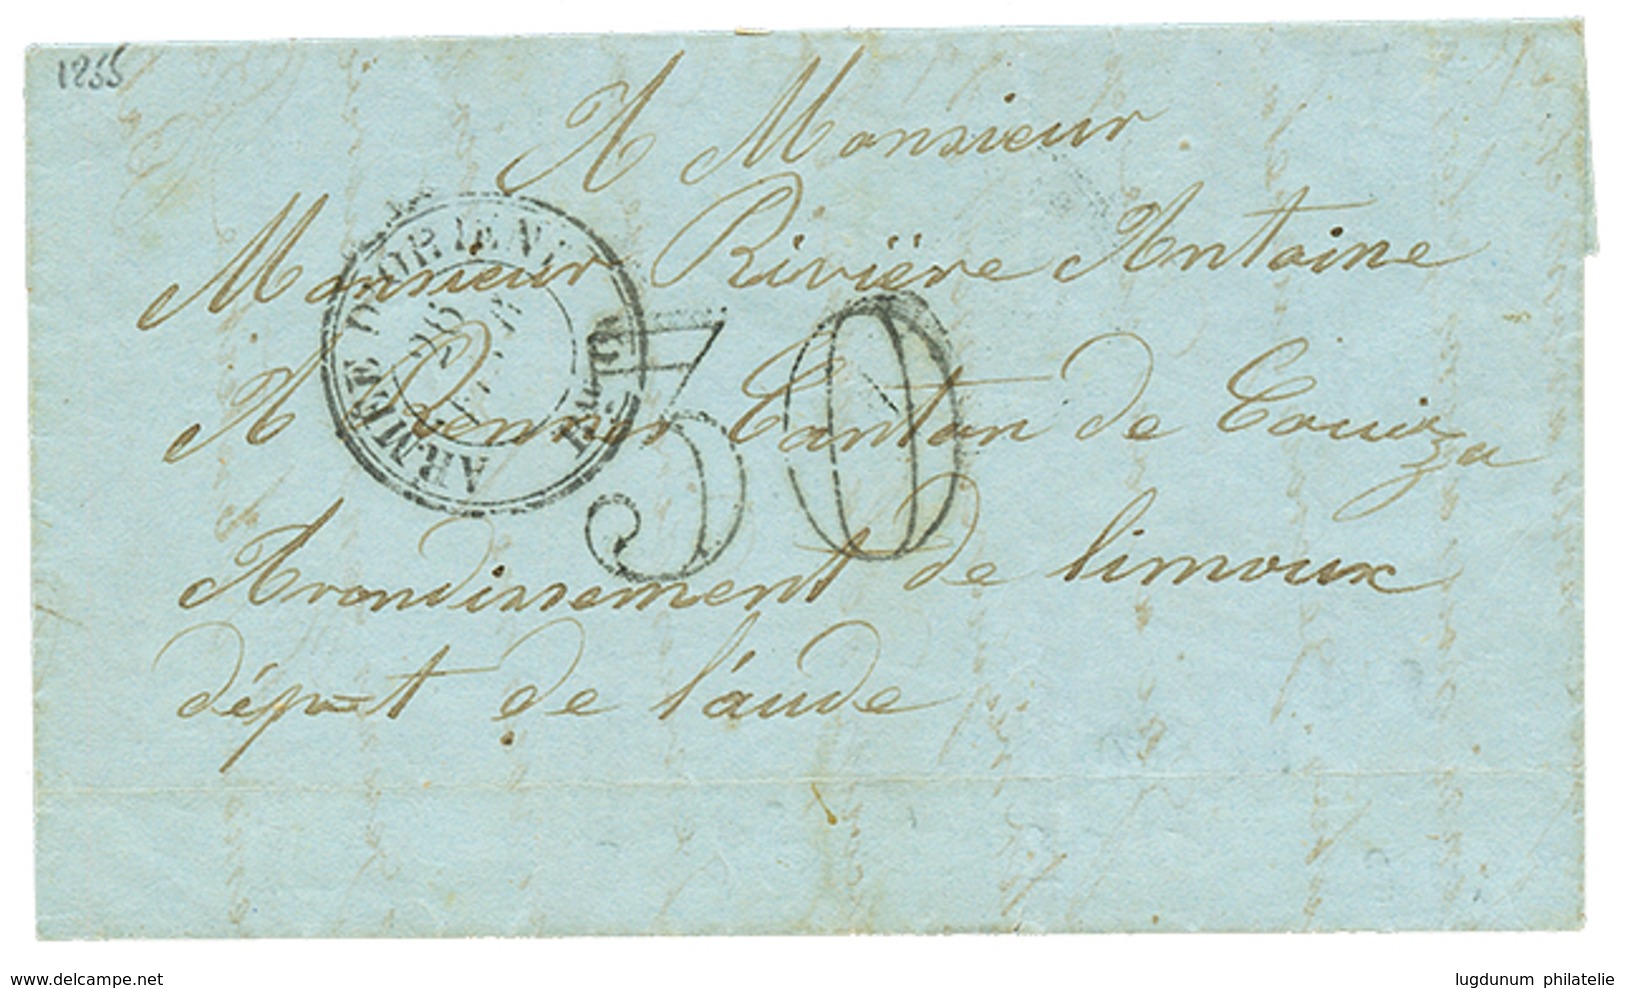 1855
A Monsieur
Monsieur Rivière Antoine
A Rennes Canton de Couiza
Arondissement de limoux
dépt de l'aude
ARMEE D'ORIENT
30
delcampe.net
lugdunum philatelie